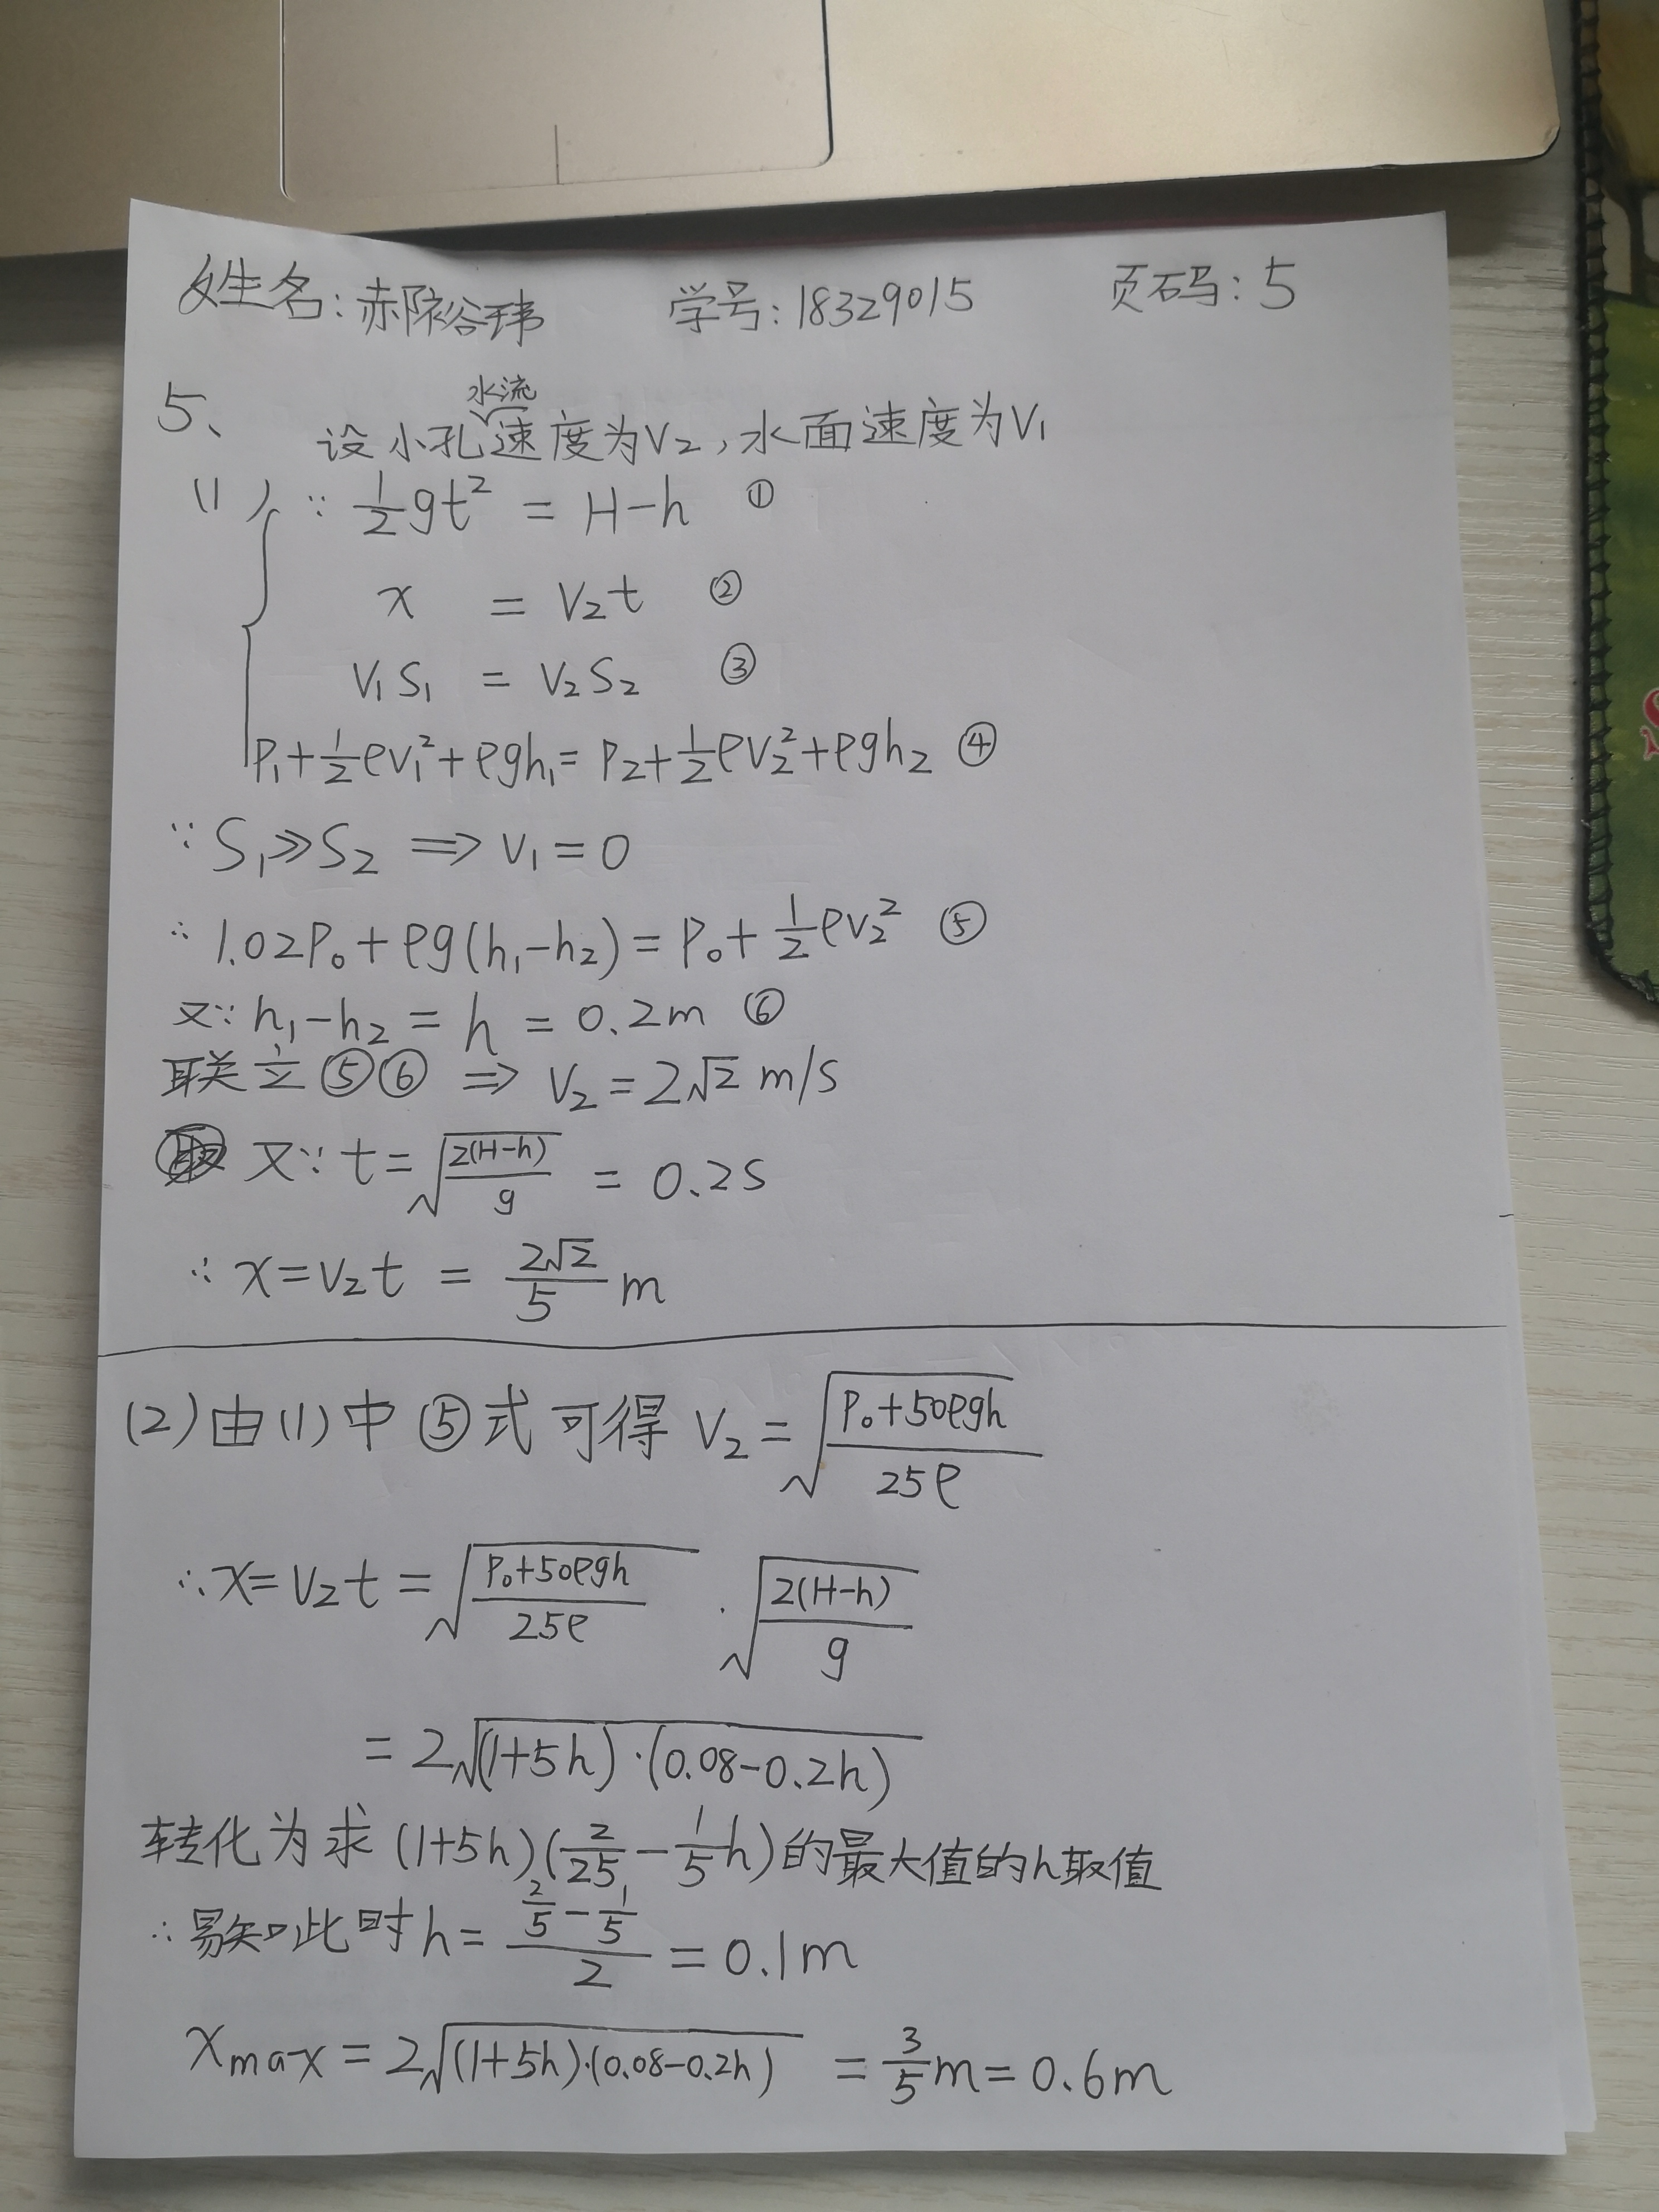 姓名:赤陈裕玮 学号:18329015 页码:5
5、 设小孔水流速度为V₂,水面速度为V₁
(1) ∵ ½gt² = H-h ①
x = V₂t ②
V₁S₁ = V₂S₂ ③
P₁+½ρv₁²+ρgh₁=P₂+½ρv₂²+ρgh₂ ④
∵ S₁≫S₂ ⟹ V₁=0
∴ 1.02P₀+ρg(h₁-h₂)=P₀+½ρv₂² ⑤
又∵ h₁-h₂ = h = 0.2m ⑥
联立⑤⑥ ⟹ V₂=2√2 m/s
又∵ t=√(2(H-h)/g) = 0.2s
∴ x=V₂t = 2√2/5 m
(2)由(1)中⑤式可得 V₂=√((P₀+50ρgh)/25ρ)
∴x=V₂t=√((P₀+50ρgh)/25ρ)·√(2(H-h)/g)
=2√((1+5h)·(0.08-0.2h))
转化为求(1+5h)(2/25-1/5h)的最大值的h取值
∴易知此时h=(2/5-1/5)/2=0.1m
xmax=2√((1+5h)·(0.08-0.2h)) =3/5m=0.6m